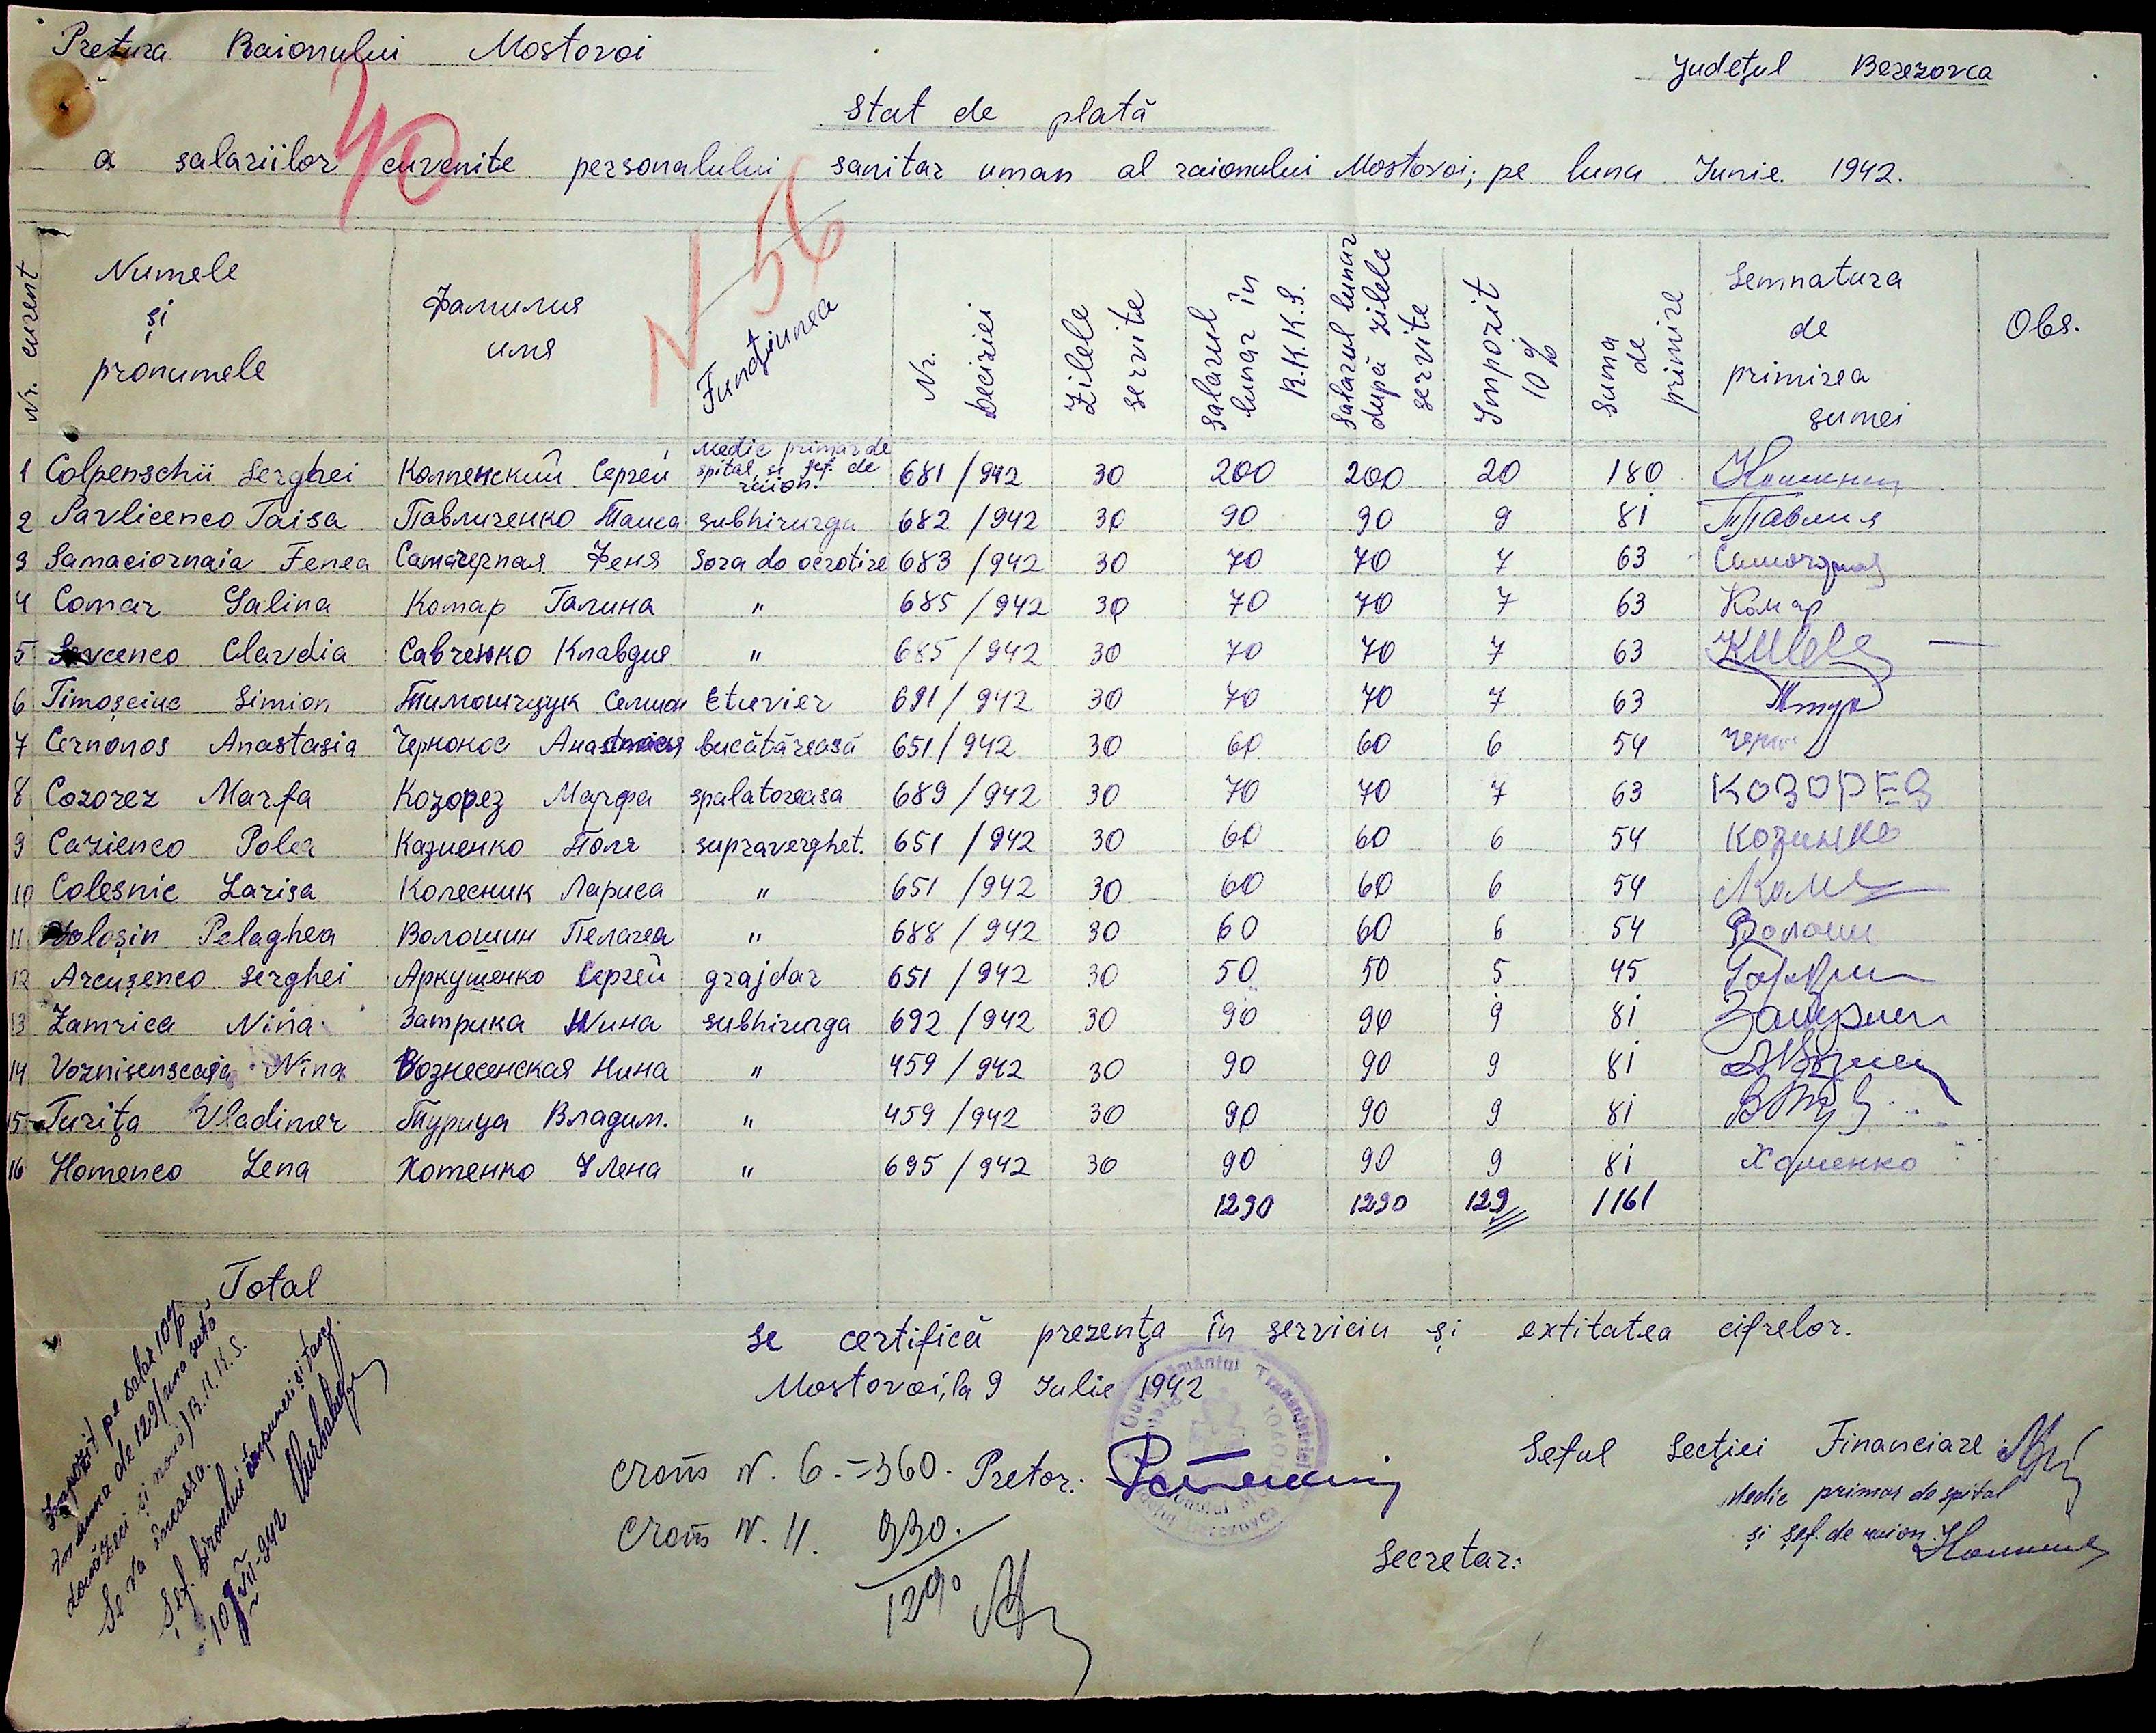 Pretura Raionului Mostovoi
Județul Berezovca
40
Stat de plată
a salariilor cuvenite personalului sanitar uman al raionului Mostovoi, pe luna Iunie 1942.
N 56
Nr. curent | Numele și pronumele | Фамилия имя | Funcțiunea | Nr. deciziei | Zilele servite | Salarul lunar în R.K.K.S. | Salarul lunar după zilele servite | Impozit 10% | Suma de primire | Semnatura de primirea sumei | Obs.
1 Colpenschii Serghei Колпенский Сергей Medic primar de spital și șef. de raion. 681/942 30 200 200 20 180
2 Pavlicenco Taisa Павличенко Таиса subhirurga 682/942 30 90 90 9 81
3 Samaciornaia Fenea Самачерная Феня Sora do ocrotire 683/942 30 70 70 7 63
4 Comar Galina Комар Галина " 685/942 30 70 70 7 63 Комар
5 Savcenco Clavdia Савченко Клавдия " 685/942 30 70 70 7 63
6 Timoșciuc Simion Тимощук Семион Etuvier 691/942 30 70 70 7 63
7 Cernonos Anastasia Чернонос Анастасия bucătăreasă 651/942 30 60 60 6 54
8 Cozorez Marfa Козорез Марфа spalatoreasa 689/942 30 70 70 7 63 КОЗОРЕЗ
9 Cazienco Polea Казиенко Поля supraverghet. 651/942 30 60 60 6 54
10 Colesnic Larisa Колесник Лариса " 651/942 30 60 60 6 54
11 Voloșin Pelaghea Волошин Пелагея " 688/942 30 60 60 6 54 Волошин
12 Arcușenco Serghei Аркушенко Сергей grajdar 651/942 30 50 50 5 45
13 Zamrica Nina Замрика Нина subhirurga 692/942 30 90 90 9 81
14 Voznisenscaia Nina Вознесенская Нина " 459/942 30 90 90 9 81
15 Turița Vladimer Турица Владим. " 459/942 30 90 90 9 81
16 Homenco Lena Хоменко Улена " 695/942 30 90 90 9 81 Хоменко
1290 1290 129 1161
Total
Se certifică prezența în serviciu și extitatea cifrelor.
Mostovoi, la 9 Iulie 1942
Guvernământul Transnistriei
N. 6. = 360. Pretor:
N. 11. 930.
1290
Șeful Secției Financiare
Medic primar de spital
și șef. de raion.
Secretar:
Impozit pe salar 10%
în suma de 129/una sută
douăzeci și nouă/ R.K.K.S.
Se va încassa.
Șef. biroului impuneri și taxe.
10/VII-942